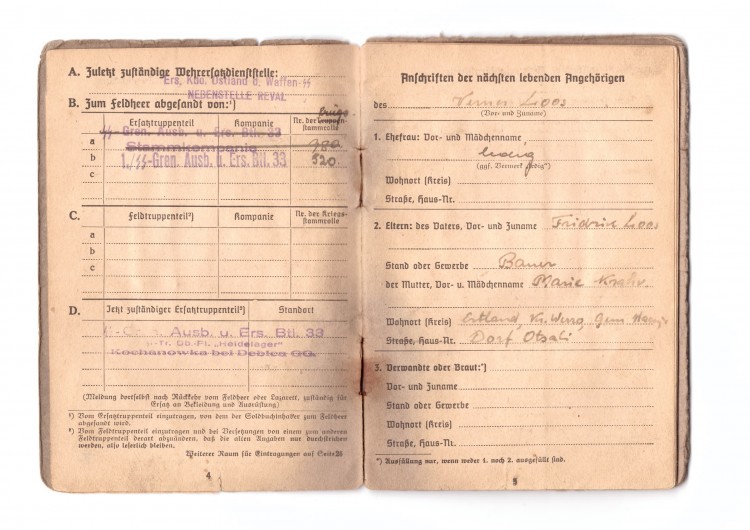 A. Zuletzt zuständige Wehrersatzdienststelle:
Ers. Kdo. Ostland d. Waffen-SS
NEBENSTELLE REVAL
B. Zum Feldheer abgesandt von:¹)
Ersatztruppenteil Kompanie Nr. der Truppenstammrolle
a SS-Gren. Ausb. u. Ers. Btl. 33
Stammkompanie 780
b 1./SS-Gren. Ausb. u. Ers. Btl. 33 520
c
C. Feldtruppenteil²) Kompanie Nr. der Kriegsstammrolle
a
b
c
D. Jetzt zuständiger Ersatztruppenteil²) Standort
Ausb. u. Ers. Btl. 33
Tr. Üb. Pl. „Heidelager"
Kochanowka bei Debica GG.
(Meldung dortselbst nach Rückkehr vom Feldheer oder Lazarett, zuständig für
Ersatz an Bekleidung und Ausrüstung)
¹) Vom Ersatztruppenteil einzutragen, von dem der Soldbuchinhaber zum Feldheer
abgesandt wird.
²) Vom Feldtruppenteil einzutragen und bei Versetzungen von einem zum anderen
Feldtruppenteil derart abzuändern, daß die alten Angaben nur durchstrichen
werden, also leserlich bleiben.
Weiterer Raum für Eintragungen auf Seite
4
Anschriften der nächsten lebenden Angehörigen
des Werner Loos
(Vor- und Zuname)
1. Ehefrau: Vor- und Mädchenname
ledig
(ggf. Vermerk „ledig")
Wohnort (Kreis)
Straße, Haus-Nr.
2. Eltern: des Vaters, Vor- und Zuname Fridrich Loos
Stand oder Gewerbe Bauer
der Mutter, Vor- u. Mädchenname Marie
Wohnort (Kreis) Estland, Kr. Werro, Gem.
Straße, Haus-Nr. Dorf
3. Verwandte oder Braut:*)
Vor- und Zuname
Stand oder Gewerbe
Wohnort (Kreis)
Straße, Haus-Nr.
*) Ausfüllung nur, wenn weder 1. noch 2. ausgefüllt sind.
5